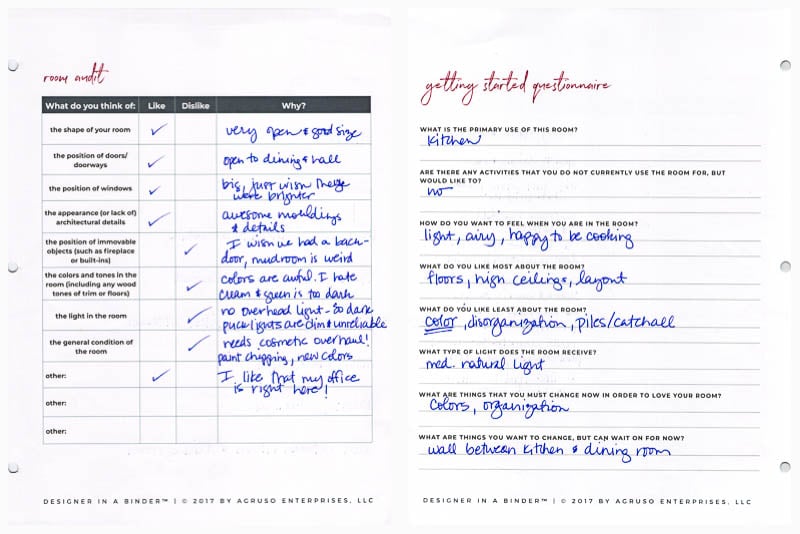 room audit
What do you think of: Like Dislike Why?
the shape of your room ✓ very open & good size
the position of doors/
doorways ✓ open to dining & hall
the position of windows ✓ big, just wish they
were brighter
the appearance (or lack of)
architectural details ✓ awesome mouldings
& details
the position of immovable
objects (such as fireplace
or built-ins) ✓ I wish we had a back-
door, mudroom is weird
the colors and tones in the
room (including any wood
tones of trim or floors) ✓ colors are awful. I hate
cream & green is too dark
the light in the room ✓ no overhead light - so dark
puck lights are dim & unreliable
the general condition of
the room ✓ needs cosmetic overhaul!
paint chipping, new colors
other: ✓ I like that my office
is right here!
other:
other:
DESIGNER IN A BINDER™ | © 2017 BY AGRUSO ENTERPRISES, LLC
getting started questionnaire
WHAT IS THE PRIMARY USE OF THIS ROOM?
kitchen
ARE THERE ANY ACTIVITIES THAT YOU DO NOT CURRENTLY USE THE ROOM FOR, BUT
WOULD LIKE TO?
no
HOW DO YOU WANT TO FEEL WHEN YOU ARE IN THE ROOM?
light, airy, happy to be cooking
WHAT DO YOU LIKE MOST ABOUT THE ROOM?
floors, high ceilings, layout
WHAT DO YOU LIKE LEAST ABOUT THE ROOM?
color, disorganization, piles/catchall
WHAT TYPE OF LIGHT DOES THE ROOM RECEIVE?
med. natural light
WHAT ARE THINGS THAT YOU MUST CHANGE NOW IN ORDER TO LOVE YOUR ROOM?
colors, organization
WHAT ARE THINGS YOU WANT TO CHANGE, BUT CAN WAIT ON FOR NOW?
wall between kitchen & dining room
DESIGNER IN A BINDER™ | © 2017 BY AGRUSO ENTERPRISES, LLC